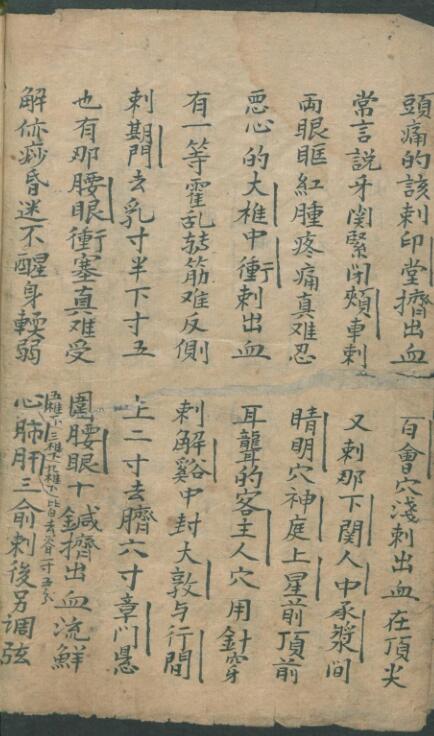 頭痛的該刺印堂擠出血　百會穴淺刺出血在頂尖
常言說牙関緊閉頰車刺　又刺那下関人中承漿間
両眼眶紅腫疼痛真难忍　睛明穴神庭上星前頂前
悪心的大椎中衝刺出血　耳聾的客主人穴用針穿
有一等霍乱转筋难反側　刺解谿中封大敦与行間
刺期門去乳寸半下寸五　上二寸去臍六寸章门
也有那腰眼衝塞真难受　圍腰眼十鍼擠出血流鮮
解㑊痧昏迷不醒身輭弱　心肺肝三俞刺後另調弦
五椎下三椎下九椎下皆去脊寸五分